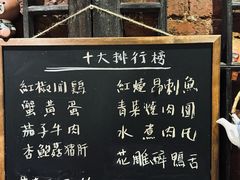 十大排行榜
紅椒田鷄
蟹黃蛋
茄子牛肉
杏鮑菇猪肝
紅燒昂刺魚
青菜燒肉圓
水煮肉片
花雕醉鴨舌